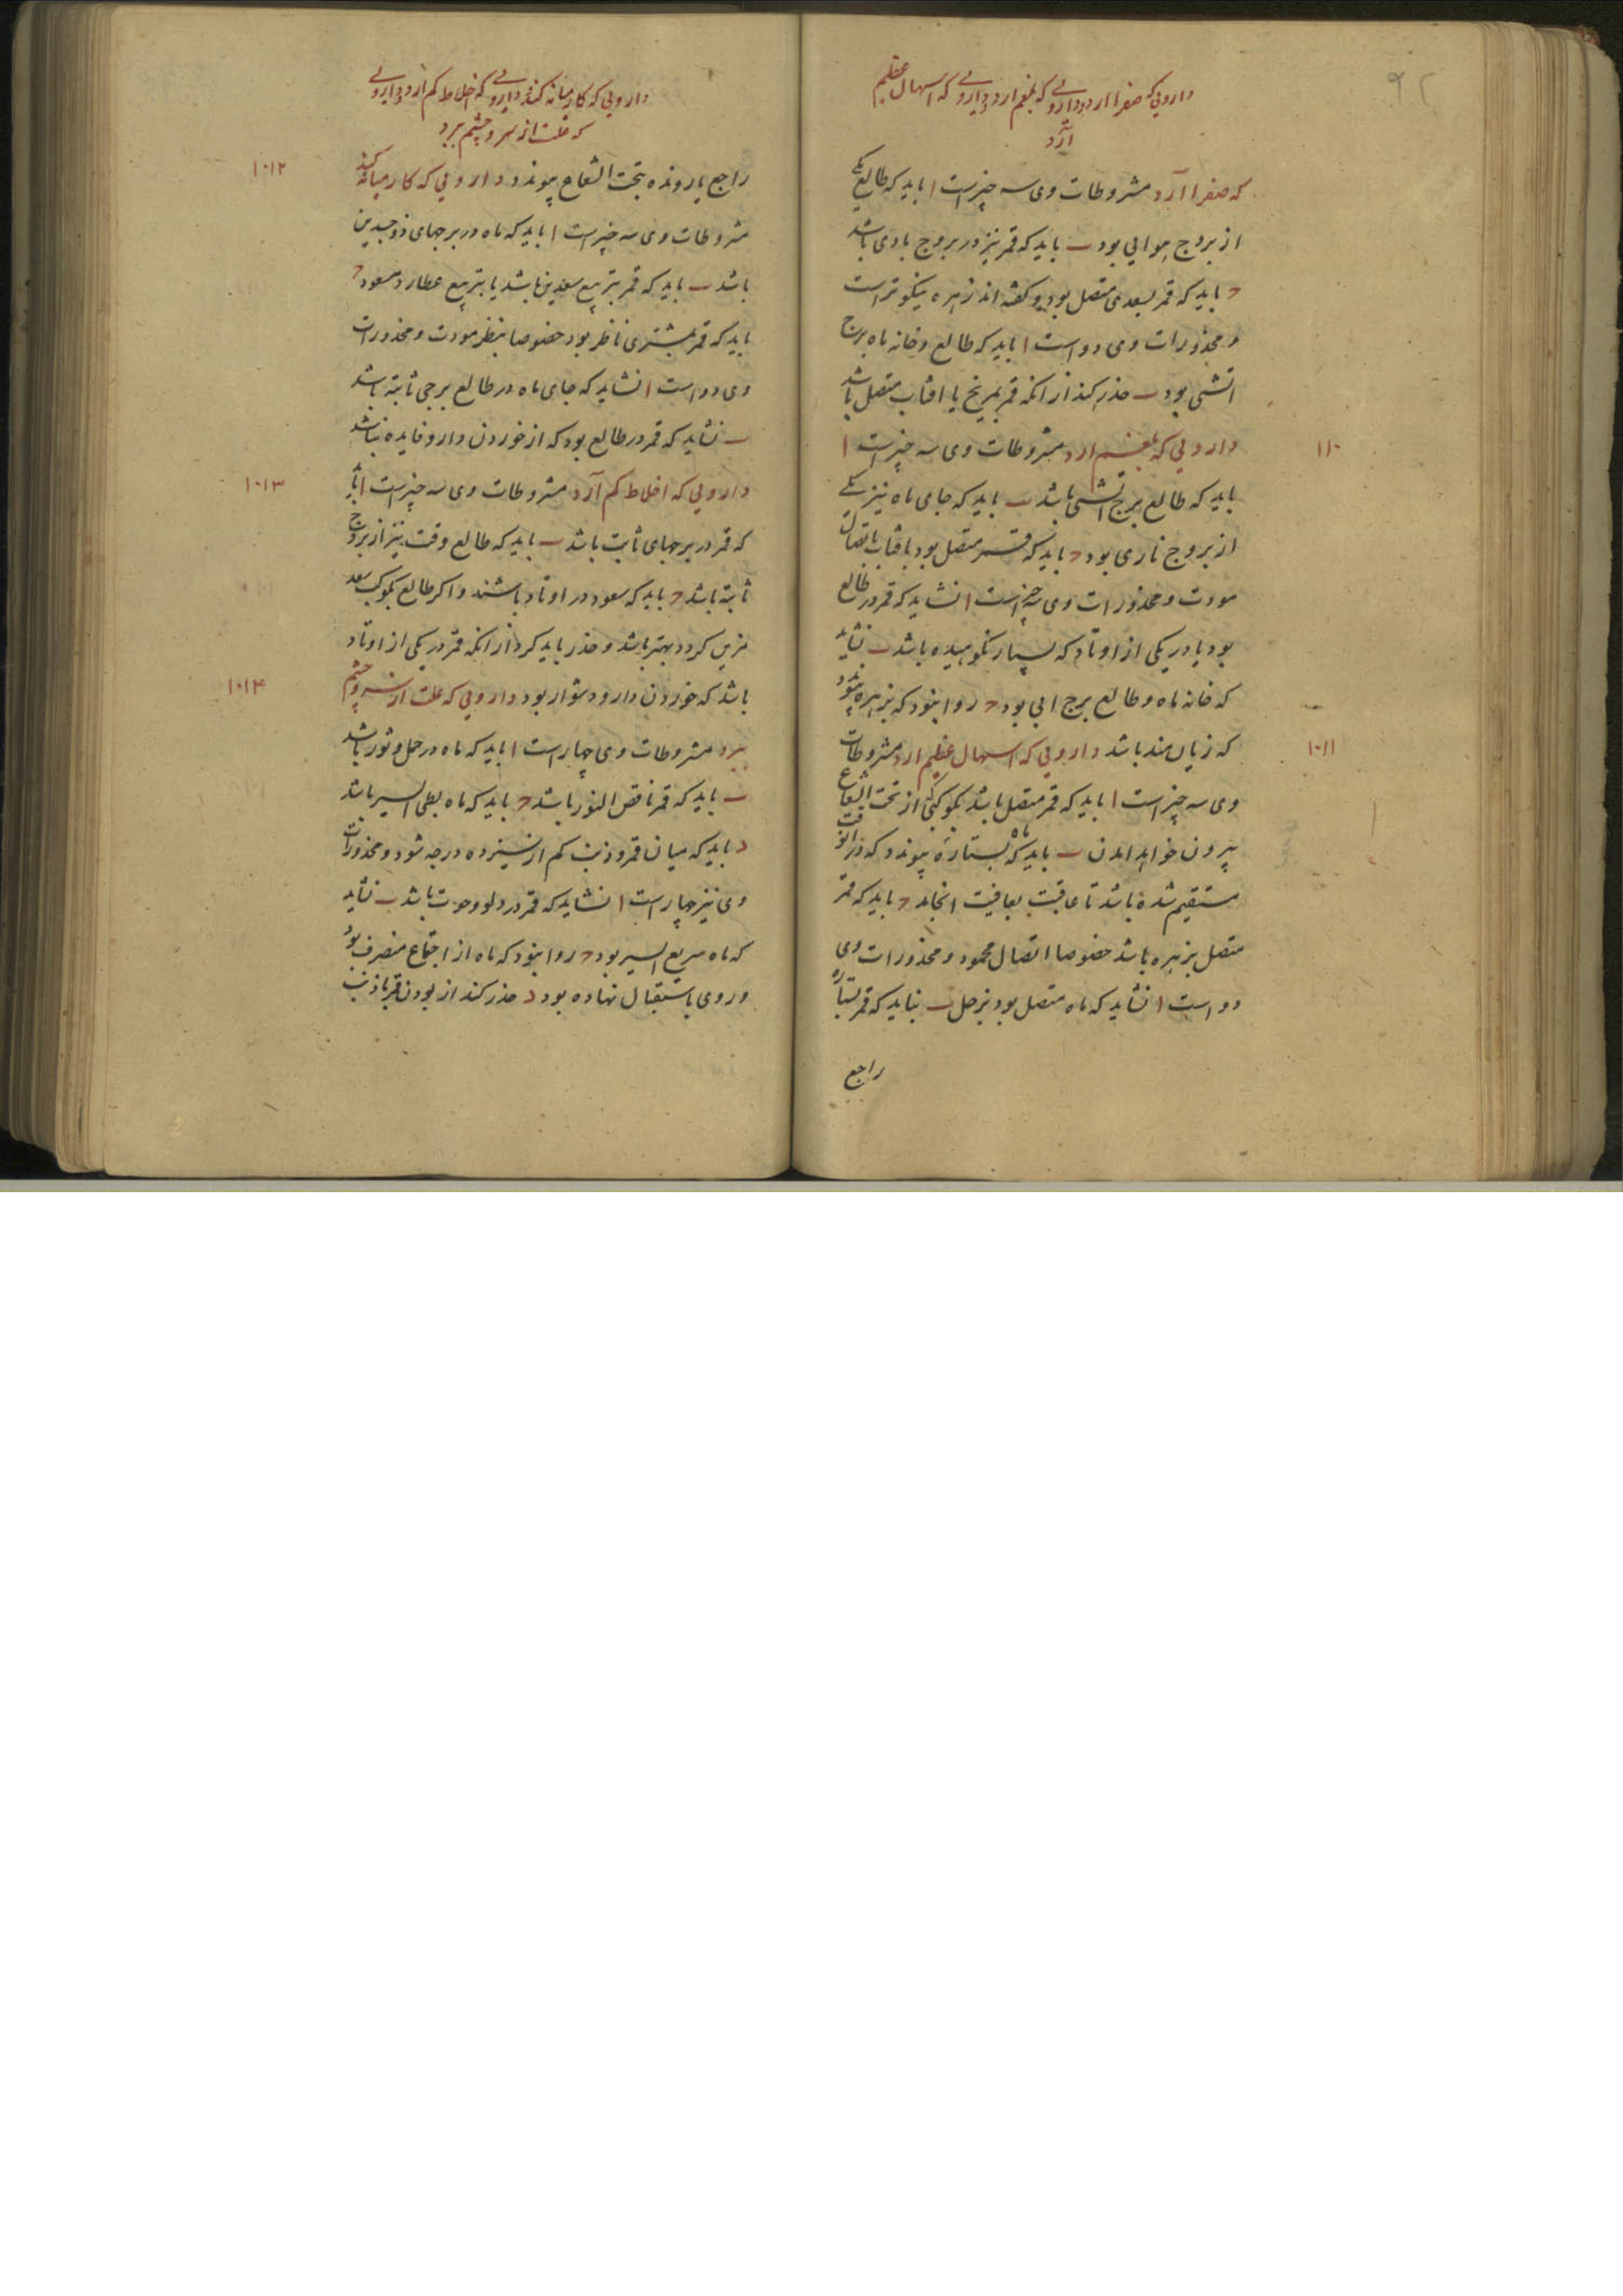 ۹۲
دارویی که صفرا ارد و دارویی که بلغم ارد و دارویی که اسهال عظیم
آرد
که صفرا آرد مشروطات وی سه چیز است ا باید که طالع یکی
از بروج هوایی بود ب باید که قمر نیز در بروج بادی باشد
ج باید که قمر بسعدی متصل بود و کفته اند زهره نیکوتر است
و محذورات وی دو است ا باید که طالع و خانه ماه برج
اتشی بود ب حذر کند از انکه قمر بمریخ یا افتاب متصل باشد
۱۱۰
دارویی که بلغم ارد مشروطات وی سه چیز است ا
باید که طالع برج اتشی باشد ب باید که جای ماه نیز یکی
از بروج ناری بود ج باید که قمر متصل بود بافتاب باتصال
مودت و محذورات وی سه چیز است ا نشاید که قمر در طالع
بود یا در یکی از اوتاد که بسیار نکوهیده باشد ب نشاید
که خانه ماه و طالع برج ابی بود ج روا نبود که بزهره
۱۰۱۱
که زیان مند باشد دارویی که اسهال عظیم ارد مشروطات
وی سه چیز است ا باید که قمر متصل باشد بکوکبی که از تحت الشعاع
بیرون خواهد امدن ب باید که ماه بستاره پیوندد که در آنوقت
مستقیم شده باشد تا عاقبت بعافیت انجامد ج باید که قمر
متصل بزهره باشد خصوصا اتصال محمود و محذورات وی
دو است ا نشاید که ماه متصل بود بزحل ب نباید که قمر بستاره
راجع
دارویی که کار میانه کند و دارویی که اخلاط کم ارد و دارویی
که علت از سر و چشم برد
۱۰۱۲
راجع یا رونده بتحت الشعاع پیوندد دارویی که کار میانه کند
مشروطات وی سه چیز است ا باید که ماه در برجهای ذوجسدین
باشد ب باید که قمر بتربیع سعدین باشد یا بتربیع عطارد مسعود ج
باید که قمر بمشتری ناظر بود خصوصا بنظر مودت و محذورات
وی دو است ا نشاید که جای ماه در طالع برجی ثابته باشد
ب نشاید که قمر در طالع بود که از خوردن دارو فایده نباشد
۱۰۱۳
دارویی که اخلاط کم آرد مشروطات وی سه چیز است ا باید
که قمر در برجهای ثابت باشد ب باید که طالع وقت نیز از بروج
ثابته باشد ج باید که سعود در اوتاد باشند و اکر طالع بکوکب سعد
مزین کردد بهتر باشد و حذر باید کرد از انکه قمر در یکی از اوتاد
۱۰۱۴
باشد که خوردن دارو دشوار بود دارویی که علت از سر و چشم
ببرد مشروطات وی چهار است ا باید که ماه در حمل و ثور باشد
ب باید که قمر ناقص النور باشد ج باید که ماه بطی السیر باشد
د باید که میان قمر و ذنب کم از سیزده درجه نشود و محذورات
وی نیز چهار است ا نشاید که قمر در دلو و حوت باشد ب نشاید
که ماه سریع السیر بود ج روا نبود که ماه از اجتماع منصرف بود
و روی باستقبال نهاده بود د حذر کند از بودن قمر با ذنب